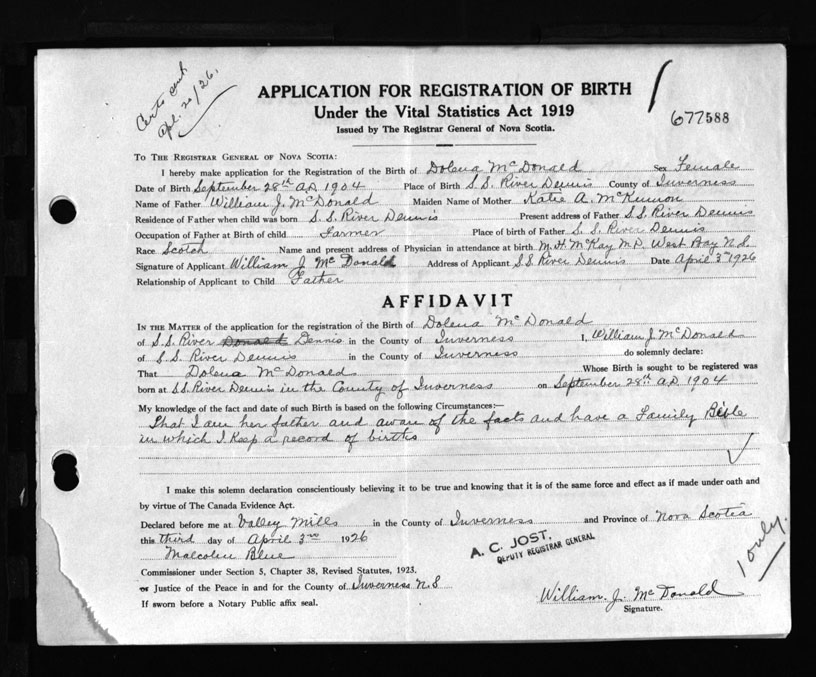 Certs sent
Apl. 20/26.
APPLICATION FOR REGISTRATION OF BIRTH
Under the Vital Statistics Act 1919
Issued by The Registrar General of Nova Scotia.
677588
TO THE REGISTRAR GENERAL OF NOVA SCOTIA:
I hereby make application for the Registration of the Birth of Dolena McDonald Sex Female
Date of Birth September 28th A.D. 1904 Place of Birth S.S. River Dennis County of Inverness
Name of Father William J. McDonald Maiden Name of Mother Katie A. McKinnon
Residence of Father when child was born S.S. River Dennis Present address of Father S.S. River Dennis
Occupation of Father at Birth of child Farmer Place of birth of Father S.S. River Dennis
Race Scotch Name and present address of Physician in attendance at birth M.H. McKay M.D. West Bay N.S.
Signature of Applicant William J McDonald Address of Applicant S.S. River Dennis Date April 3rd 1926
Relationship of Applicant to Child Father
AFFIDAVIT
IN THE MATTER of the application for the registration of the Birth of Dolena McDonald
of S.S. River Donald Dennis in the County of Inverness I, William J. McDonald
of S.S. River Dennis in the County of Inverness do solemnly declare:
That Dolena McDonald Whose Birth is sought to be registered was
born at S.S. River Dennis in the County of Inverness on September 28th A.D. 1904
My knowledge of the fact and date of such Birth is based on the following Circumstances:—
That I am her father and aware of the facts and have a Family Bible
in which I keep a record of births
I make this solemn declaration conscientiously believing it to be true and knowing that it is of the same force and effect as if made under oath and
by virtue of The Canada Evidence Act.
Declared before me at Valley Mills in the County of Inverness and Province of Nova Scotia
this third day of April 3rd 1926
A. C. JOST.
DEPUTY REGISTRAR GENERAL
1 only.
Malcolm Blue
Commissioner under Section 5, Chapter 38, Revised Statutes, 1923.
or Justice of the Peace in and for the County of Inverness N.S
If sworn before a Notary Public affix seal.
William. J. McDonald
Signature.